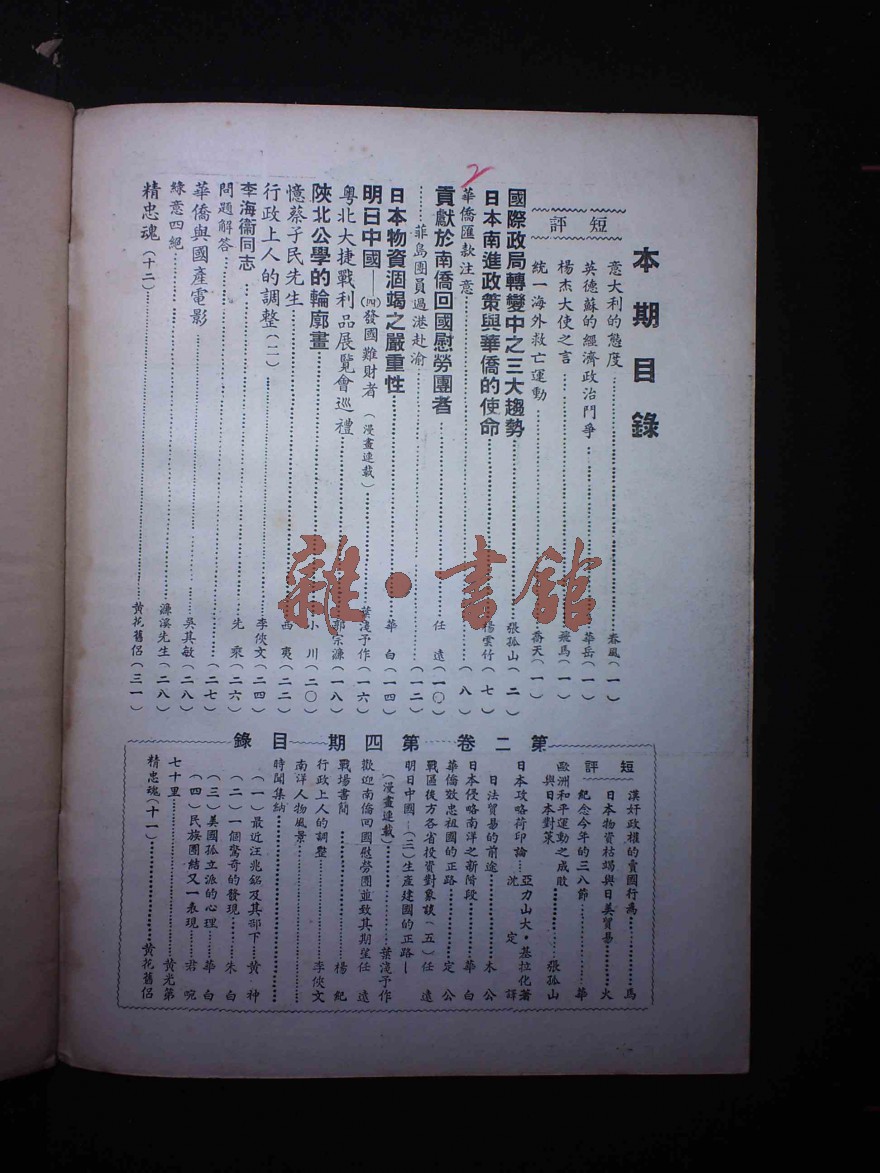 本期目錄
短評
意大利的態度……春風（一）
英德蘇的經濟政治鬥爭……華岳（一）
楊杰大使之言……飛馬（一）
統一海外救亡運動……喬天（一）
國際政局轉變中之三大趨勢……張孤山（二）
日本南進政策與華僑的使命……楊雲竹（七）
2
華僑匯款注意……（八）
貢獻於南僑回國慰勞團者……任遠（一〇）
……菲島團員過港赴渝……（一二）
日本物資涸竭之嚴重性……華白（一四）
明日中國——（四）發國難財者（漫畫連載）……葉淺予作（一六）
粵北大捷戰利品展覽會巡禮……郭宗濂（一八）
陝北公學的輪廓畫……小川（二〇）
憶蔡孑民先生……西夷（二二）
行政上人的調整（二）……李俠文（二四）
李海衞同志……先乘（二六）
問題解答……（二七）
華僑與國產電影……吳其敏（二八）
綠意四絕……濂溪先生（二八）
精忠魂（十二）……黃花舊侶（三一）
雜·書館
第二卷第四期目錄
短評
漢奸政權的賣國行為……馬
日本物資枯竭與日美貿易……火
紀念今年的三八節……華
歐洲和平運動之成敗與日本對策……張孤山
日本攻略荷印論……亞力山大·基拉化著
沈定譯
日法貿易的前途……木公
日本侵略南洋之新階段……華白
華僑效忠祖國的正路……定公
戰區後方各省投資對象談（五）……任遠
明日中國—（三）生產建國的正路—
（漫畫連載）……葉淺予作
歡迎南僑回國慰勞團並致其期望任遠
戰場書簡……楊紀
行政上人的調整……李俠文
南洋人物風景……
時聞集納……
（一）最近汪兆銘及其部下……黃神
（二）一個驚奇的發現……朱白
（三）美國孤立派的心理……華白
（四）民族團結又一表現……君婉
七十里……黃光第
精忠魂（十一）……黃花舊侶